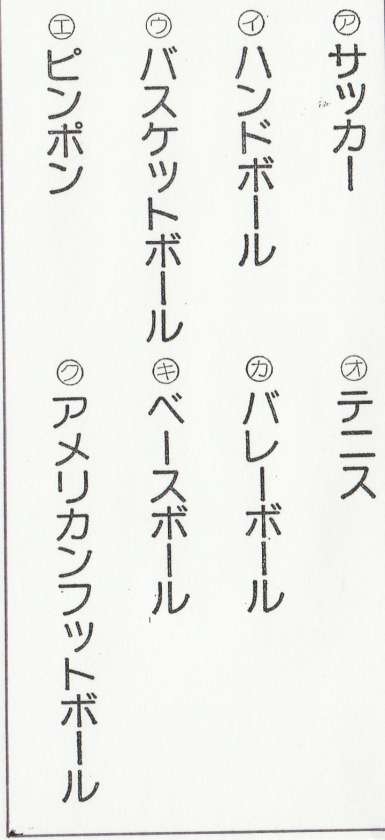 ㋐サッカー
㋑ハンドボール
㋒バスケットボール
㋓ピンポン
㋔テニス
㋕バレーボール
㋖ベースボール
㋗アメリカンフットボール